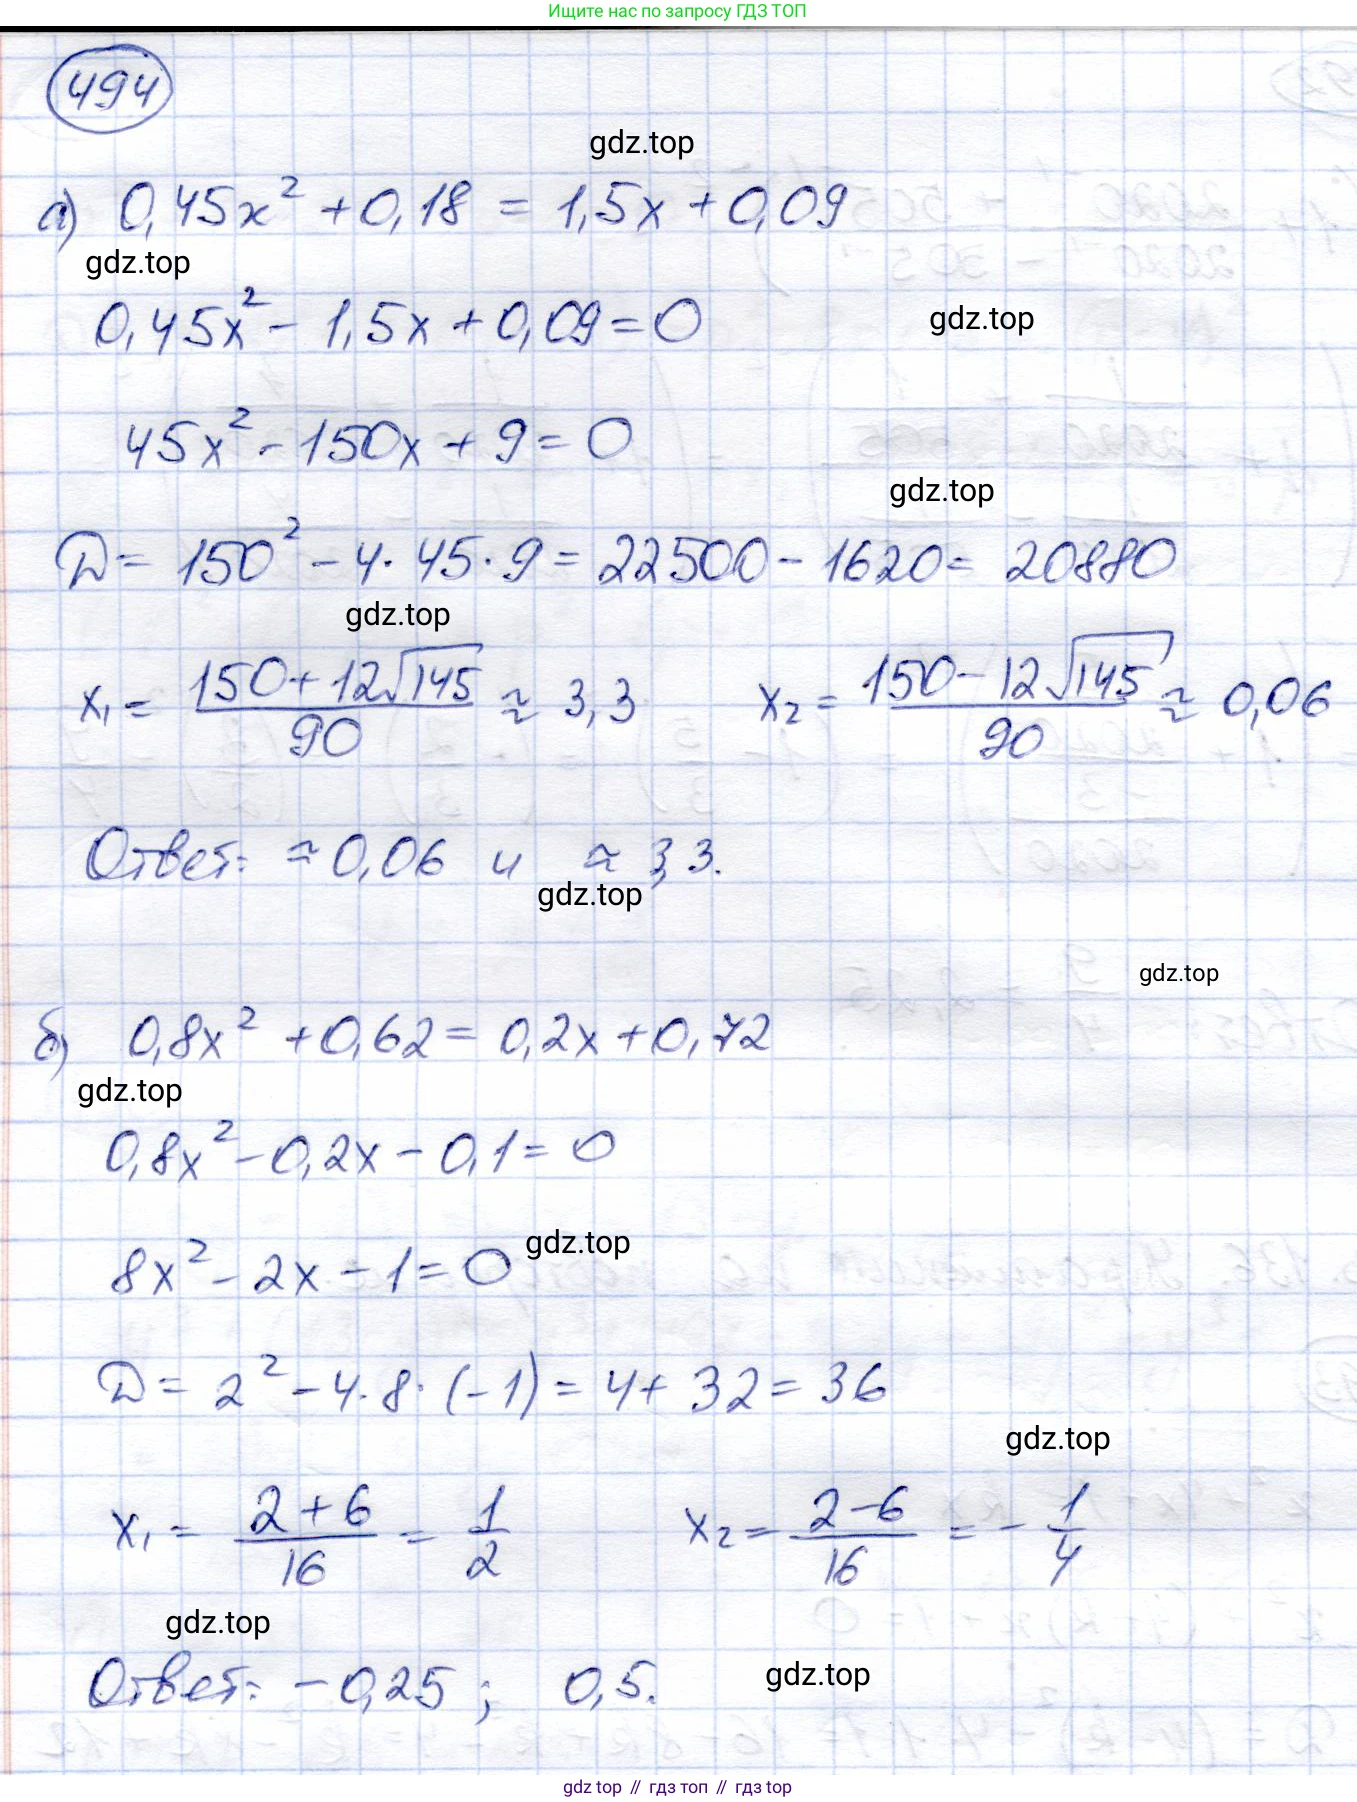 Ищите нас по запросу ГДЗ ТОП
494
gdz.top
а) 0,45x² + 0,18 = 1,5x + 0,09
gdz.top
0,45x² - 1,5x + 0,09 = 0
gdz.top
45x² - 150x + 9 = 0
gdz.top
D = 150² - 4 · 45 · 9 = 22500 - 1620 = 20880
gdz.top
x₁ = (150 + 12√145)/90 ≈ 3,3 x₂ = (150 - 12√145)/90 ≈ 0,06
Ответ: ≈ 0,06 и ≈ 3,3.
gdz.top
gdz.top
б) 0,8x² + 0,62 = 0,2x + 0,72
gdz.top
0,8x² - 0,2x - 0,1 = 0
gdz.top
8x² - 2x - 1 = 0
D = 2² - 4 · 8 · (-1) = 4 + 32 = 36
gdz.top
x₁ = (2 + 6)/16 = 1/2 x₂ = (2 - 6)/16 = - 1/4
gdz.top
gdz.top
Ответ: -0,25 ; 0,5.
gdz top // гдз топ // гдз top